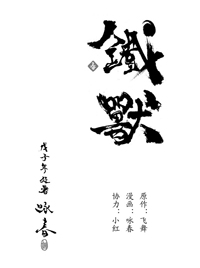 鐵獸
原作：飞舞
漫画：咏春
协力：小红
戊子年題署
咏春